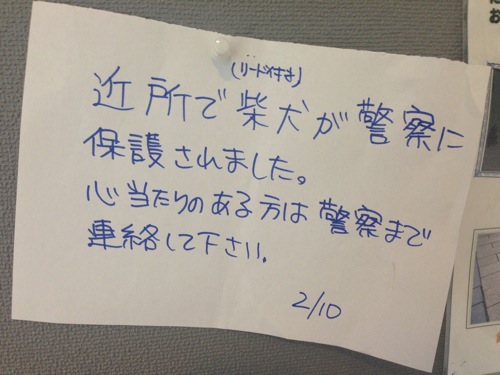 (リード付き)
近所で柴犬が警察に
保護されました。
心当たりのある方は警察まで
連絡して下さい。
2/10
に
お